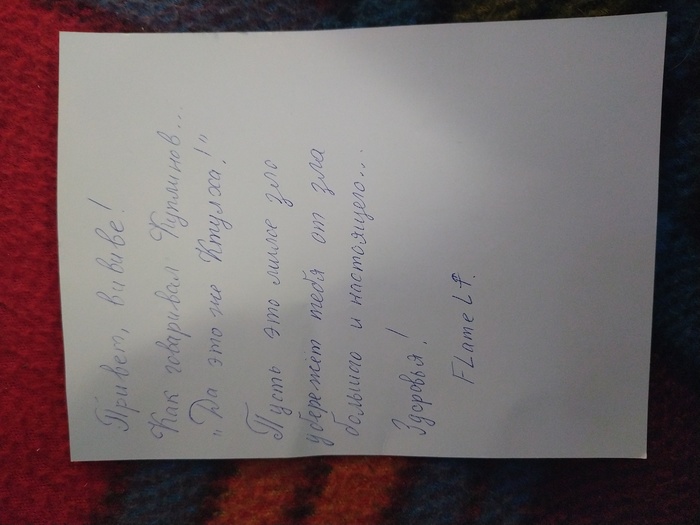 Привет, вививе!
Как говаривал Куплинов...
"Да это же Ктулха!"
Пусть это милое зло
убережёт тебя от зла
большого и настоящего...
Здоровья!
FLameLf.